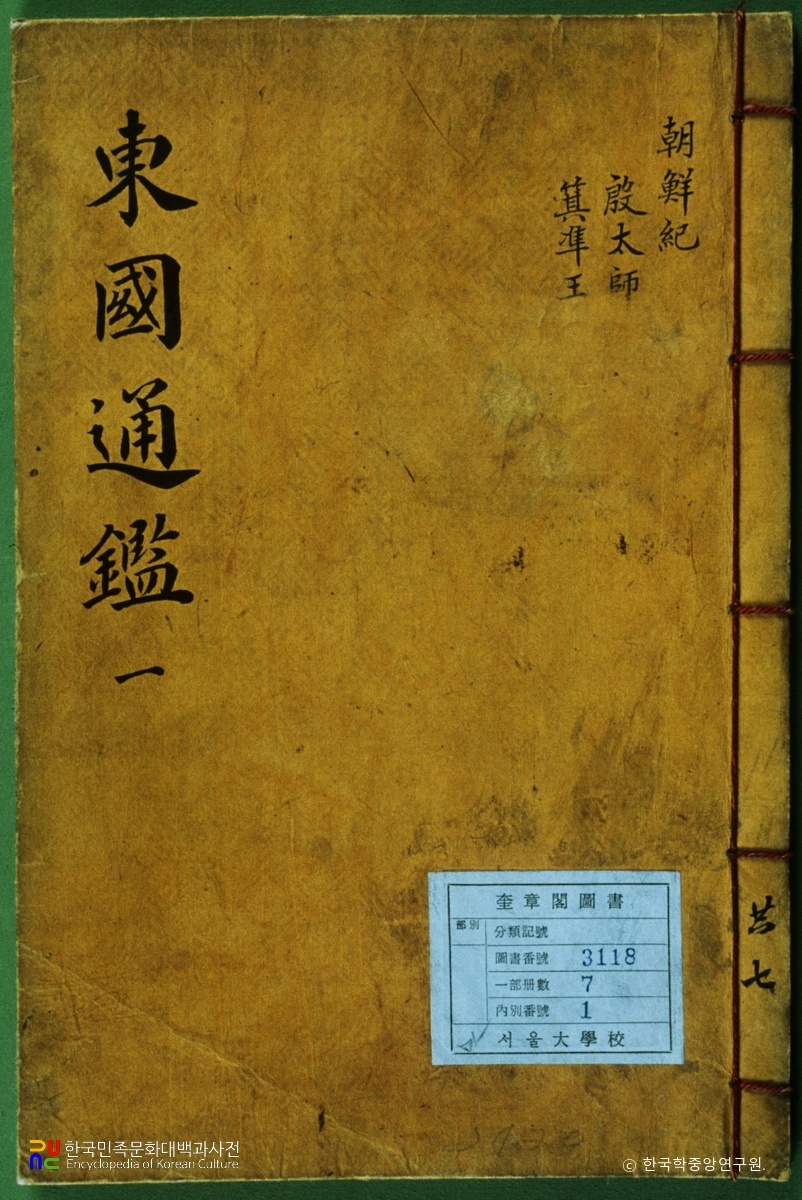 朝鮮紀
殷太師
箕準王
東國通鑑 一
共七
奎章閣圖書
部別
分類記號
圖書番號 3118
一部册數 7
內別番號 1
서울大學校
한국민족문화대백과사전
Encyclopedia of Korean Culture
© 한국학중앙연구원.